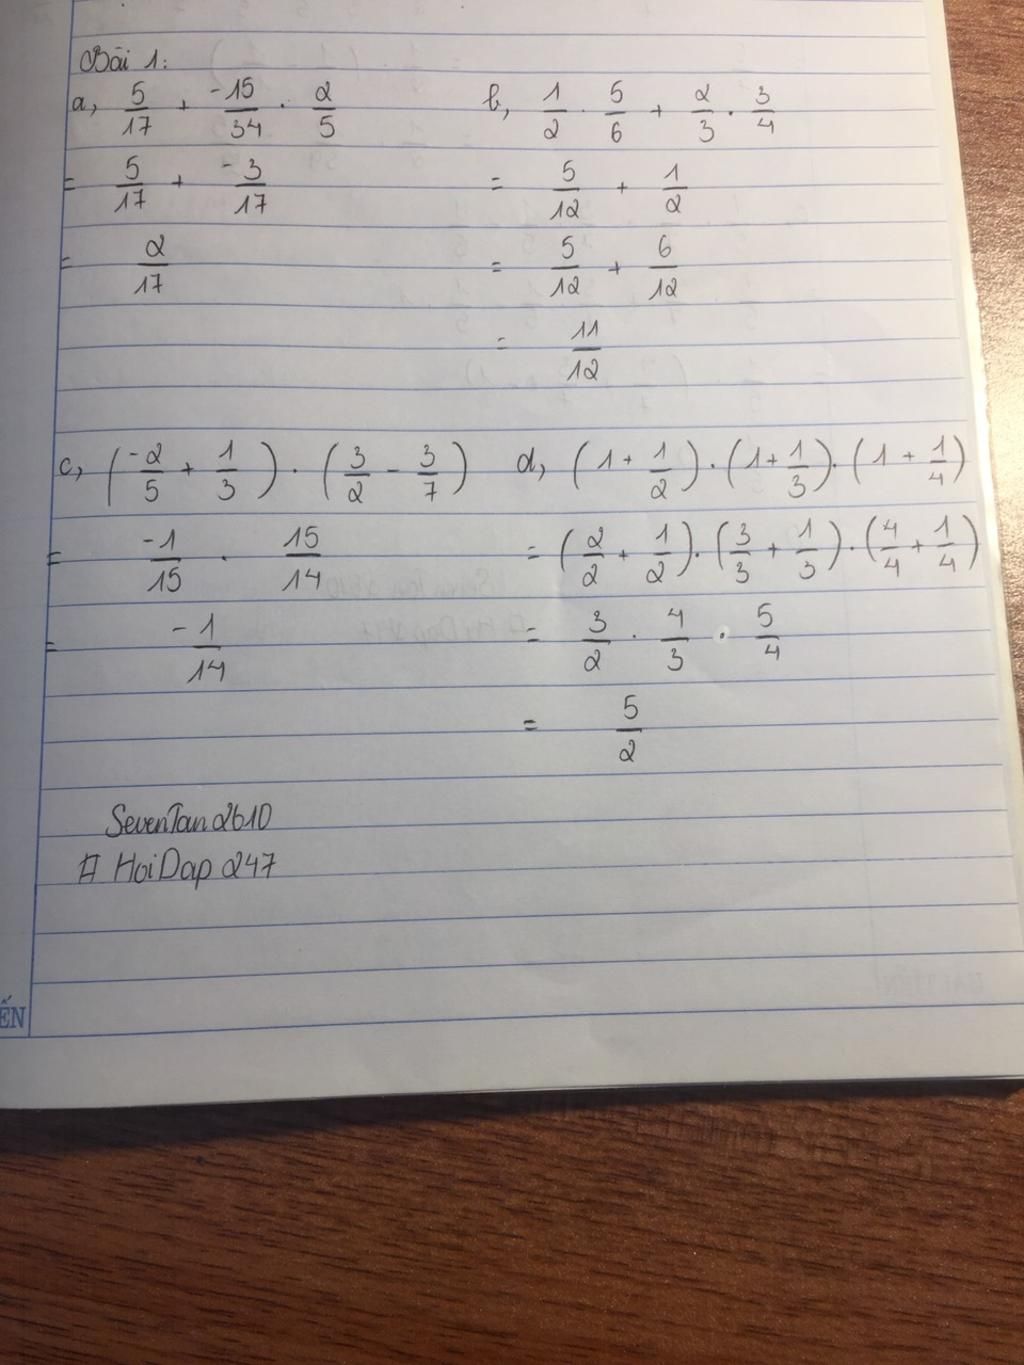 Bài 1:
a, 5/17 + -15/34 . 2/5
= 5/17 + -3/17
= 2/17
b, 1/2 . 5/6 + 2/3 . 3/4
= 5/12 + 1/2
= 5/12 + 6/12
= 11/12
c, (-2/5 + 1/3) . (3/2 - 3/7)
= -1/15 . 15/14
= -1/14
d, (1 + 1/2) . (1 + 1/3) . (1 + 1/4)
= (2/2 + 1/2) . (3/3 + 1/3) . (4/4 + 1/4)
= 3/2 . 4/3 . 5/4
= 5/2
SevenTan2610
# HoiDap 247
ẾN